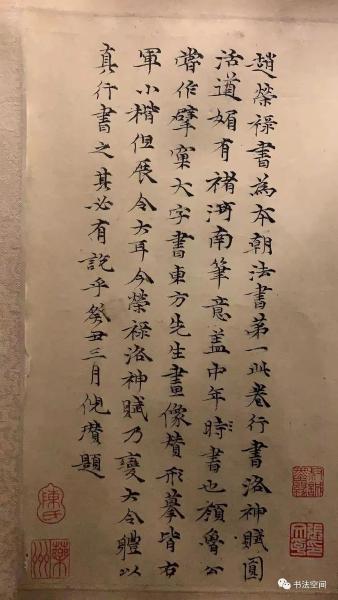 趙榮祿書為本朝法書第一此卷行書洛神賦圓
活遒媚有褚河南筆意蓋中年時書也顏魯公
嘗作擘窠大字書東方先生畫像贊形摹皆右
軍小楷但展令大耳今榮祿洛神賦乃變大令體以
真行書之其必有說乎癸丑三月倪瓚題
书法空间